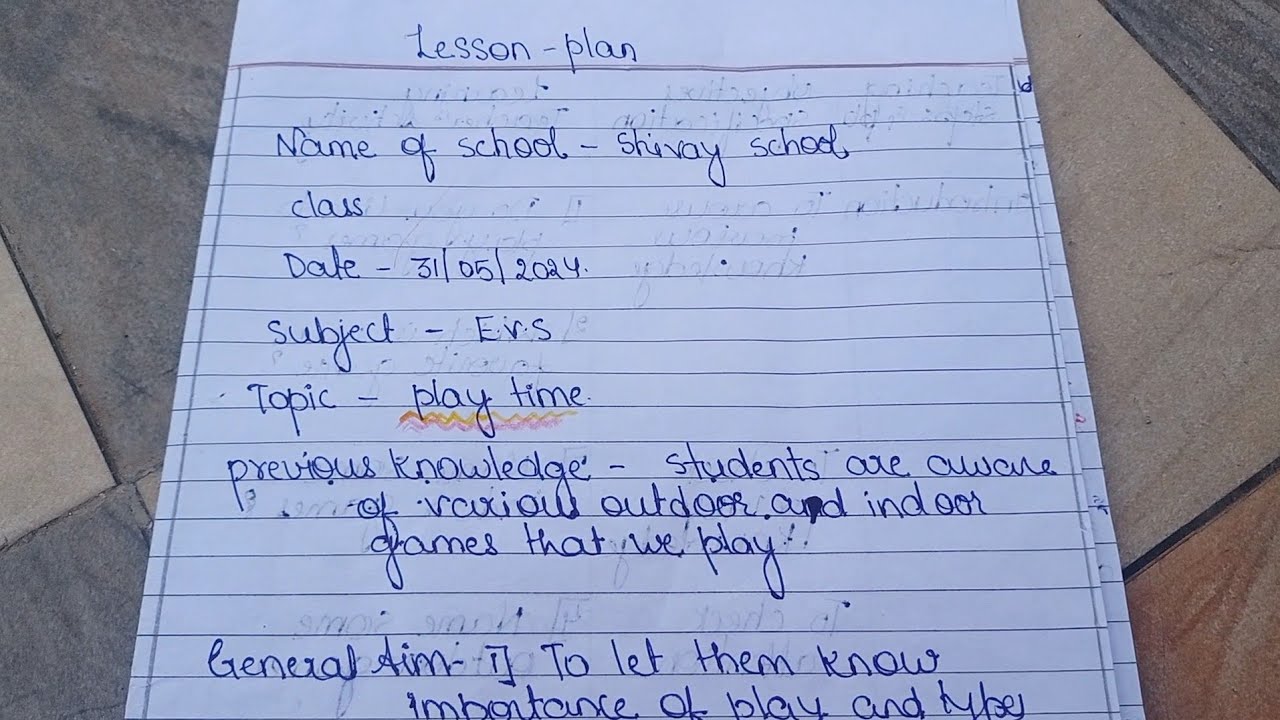 Lesson - plan
Name of school - Shivay school
class
Date - 31/05/2024.
Subject - E.V.S
Topic - play time.
previous knowledge - students are aware
of various outdoor and indoor
games that we play.
General Aim - 1] To let them know
importance of play and types